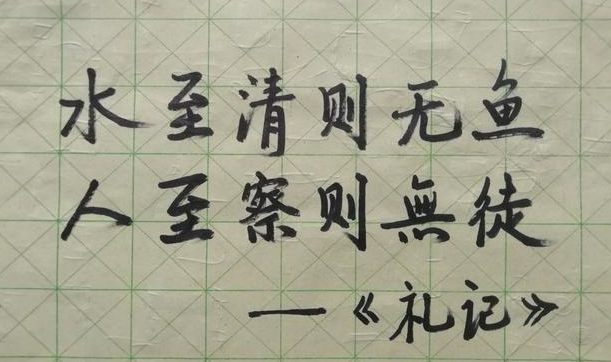 水至清则无鱼
人至察则無徒
—《礼记》